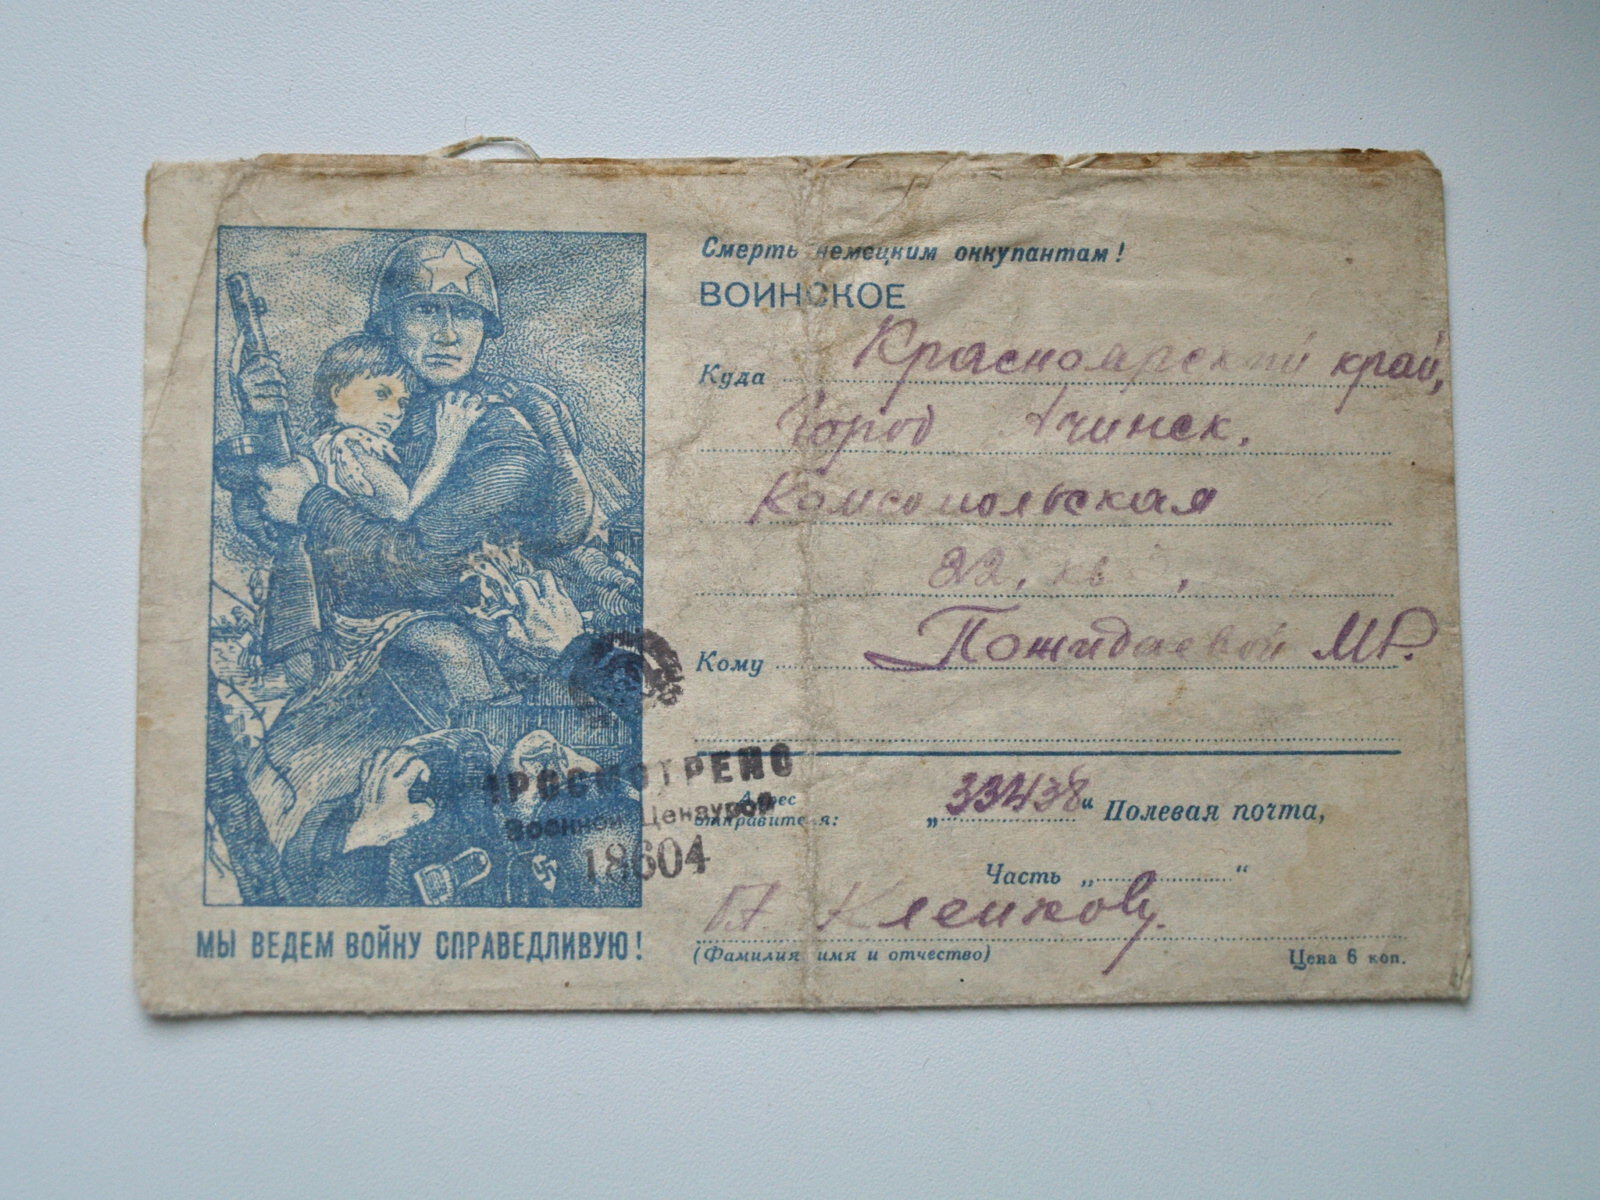 Смерть немецким оккупантам!
ВОИНСКОЕ
Куда Красноярский край,
Город Ачинск.
Комсомольская
22, кв
Кому Пожидаевой М.Г.
ПРОСМОТРЕНО
Военной Цензурой
18604
Адрес отправителя: „33438“ Полевая почта,
Часть „“
(Фамилия имя и отчество)
Цена 6 коп.
МЫ ВЕДЕМ ВОЙНУ СПРАВЕДЛИВУЮ!